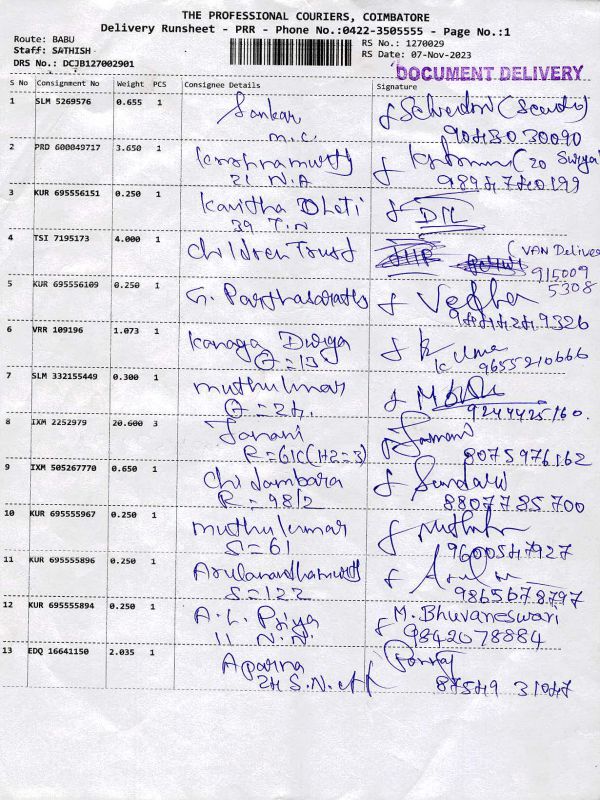 THE PROFESSIONAL COURIERS, COIMBATORE
Delivery Runsheet - PRR - Phone No.:0422-3505555 - Page No.:1
Route: BABU
Staff: SATHISH
DRS No.: DCJB127002901
RS No.: 1270029
RS Date: 07-Nov-2023
DOCUMENT DELIVERY
S No Consignment No Weight PCS Consignee Details Signature
1 SLM 5269576 0.655 1 Sankar
M.C.
90430 30090
2 PRD 600049717 3.650 1 Krishnamurthy
21 N.A
3 KUR 695556151 0.250 1 Kavitha
39 T.N
4 TSI 7195173 4.000 1 Children Trust (VAN Deliver
915009
5308
5 KUR 695556109 0.250 1 G. Parthasarathy
6 VRR 109196 1.073 1 Kanaga Durga K Uma
Q = 13 9655210666
7 SLM 332155449 0.300 1 Muthukumar
Q = 24. 9244425160.
8 IXM 2252979 20.600 3 Janani
R = 61C (H2=3) 8075976162
9 IXM 505267770 0.650 1 Chidambara
R = 98/2 8807785700
10 KUR 695555967 0.250 1 Muthukumar
S = 61 9600547927
11 KUR 695555896 0.250 1
S = 122 9865678797
12 KUR 695555894 0.250 1 A.L. Priya M. Bhuvaneswari
11 N.N. 9842078884
13 EDQ 16641150 2.035 1 Aparna
24 S.N. 87549 31047